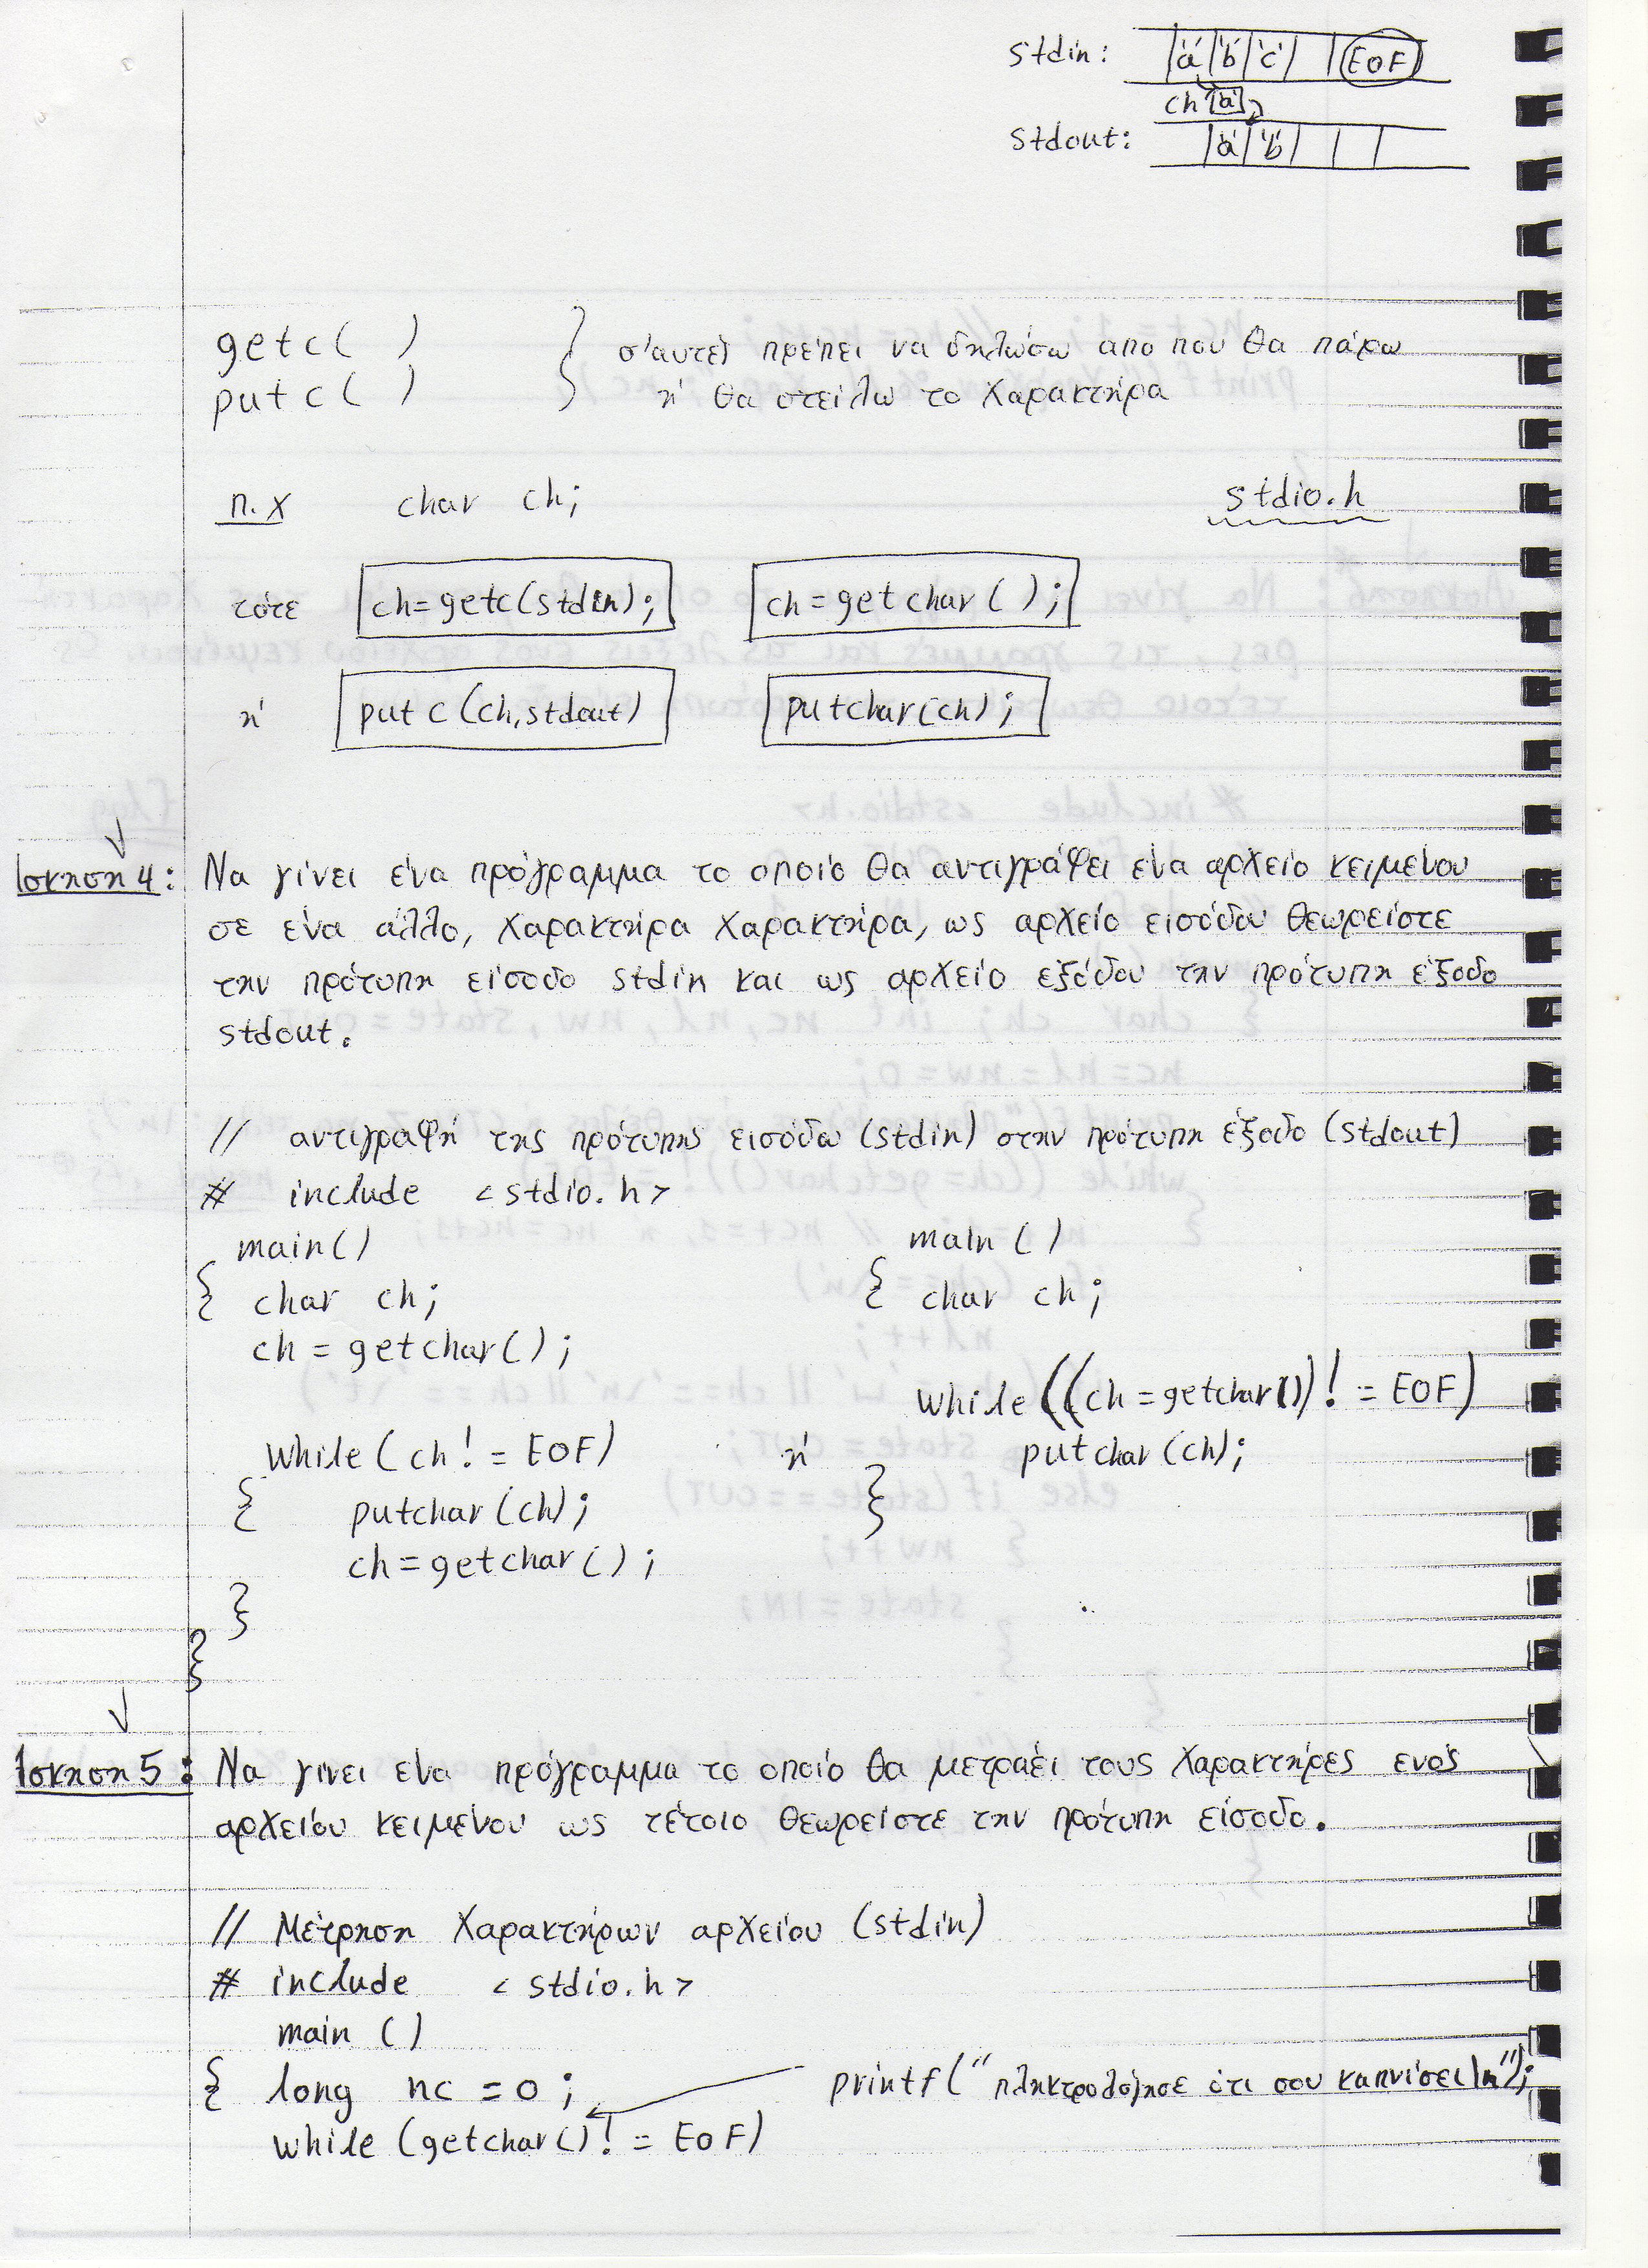 stdin: 'a' 'b' 'c' EOF
ch 'a'
stdout: 'a' 'b'
getc( ) } σ'αυτές πρέπει να δηλώσω απο που θα πάρω
putc( ) ή θα στείλω το χαρακτήρα
π.χ char ch; stdio.h
τότε ch=getc(stdin); ch=getchar();
ή putc(ch,stdout) putchar(ch);
Άσκηση 4: Να γίνει ένα πρόγραμμα το οποίο θα αντιγράφει ένα αρχείο κειμένου
σε ένα άλλο, χαρακτήρα χαρακτήρα, ως αρχείο εισόδου θεωρείστε
την πρότυπη είσοδο stdin και ως αρχείο εξόδου την πρότυπη έξοδο
stdout.
// αντιγραφή της πρότυπης εισόδου (stdin) στην πρότυπη έξοδο (stdout)
# include <stdio.h>
main() main()
{ char ch; { char ch;
ch = getchar();
while((ch=getchar())!=EOF)
while(ch!=EOF) ή putchar(ch);
{ putchar(ch); }
ch=getchar();
}
}
Άσκηση 5: Να γίνει ένα πρόγραμμα το οποίο θα μετράει τους χαρακτήρες ενός
αρχείου κειμένου ως τέτοιο θεωρείστε την πρότυπη είσοδο.
// Μέτρηση χαρακτήρων αρχείου (stdin)
# include <stdio.h>
main ()
{ long nc = 0; printf("πληκτρολόγησε ότι σου καπνίσει\n");
while (getchar()!=EOF)